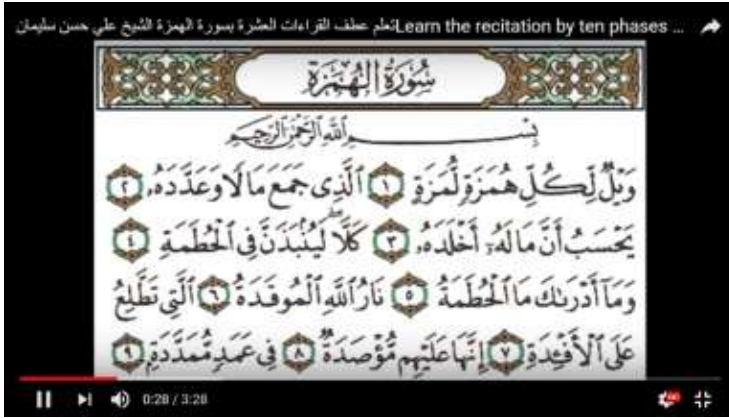 تعلم عطف القراءات العشرة بسورة الهمزة الشيخ علي حسن سليمانLearn the recitation by ten phases ...
سُورَةُ الهُمَزَةِ
بِسْمِ اللَّهِ الرَّحْمَٰنِ الرَّحِيمِ
وَيْلٌ لِّكُلِّ هُمَزَةٍ لُّمَزَةٍ ١ ٱلَّذِى جَمَعَ مَالًا وَعَدَّدَهُۥ ٢
يَحْسَبُ أَنَّ مَالَهُۥٓ أَخْلَدَهُۥ ٣ كَلَّا ۖ لَيُنۢبَذَنَّ فِى ٱلْحُطَمَةِ ٤
وَمَآ أَدْرَىٰكَ مَا ٱلْحُطَمَةُ ٥ نَارُ ٱللَّهِ ٱلْمُوقَدَةُ ٦ ٱلَّتِى تَطَّلِعُ
عَلَى ٱلْأَفْـِٔدَةِ ٧ إِنَّهَا عَلَيْهِم مُّؤْصَدَةٌ ٨ فِى عَمَدٍ مُّمَدَّدَةٍۭ ٩
0:28 / 3:28